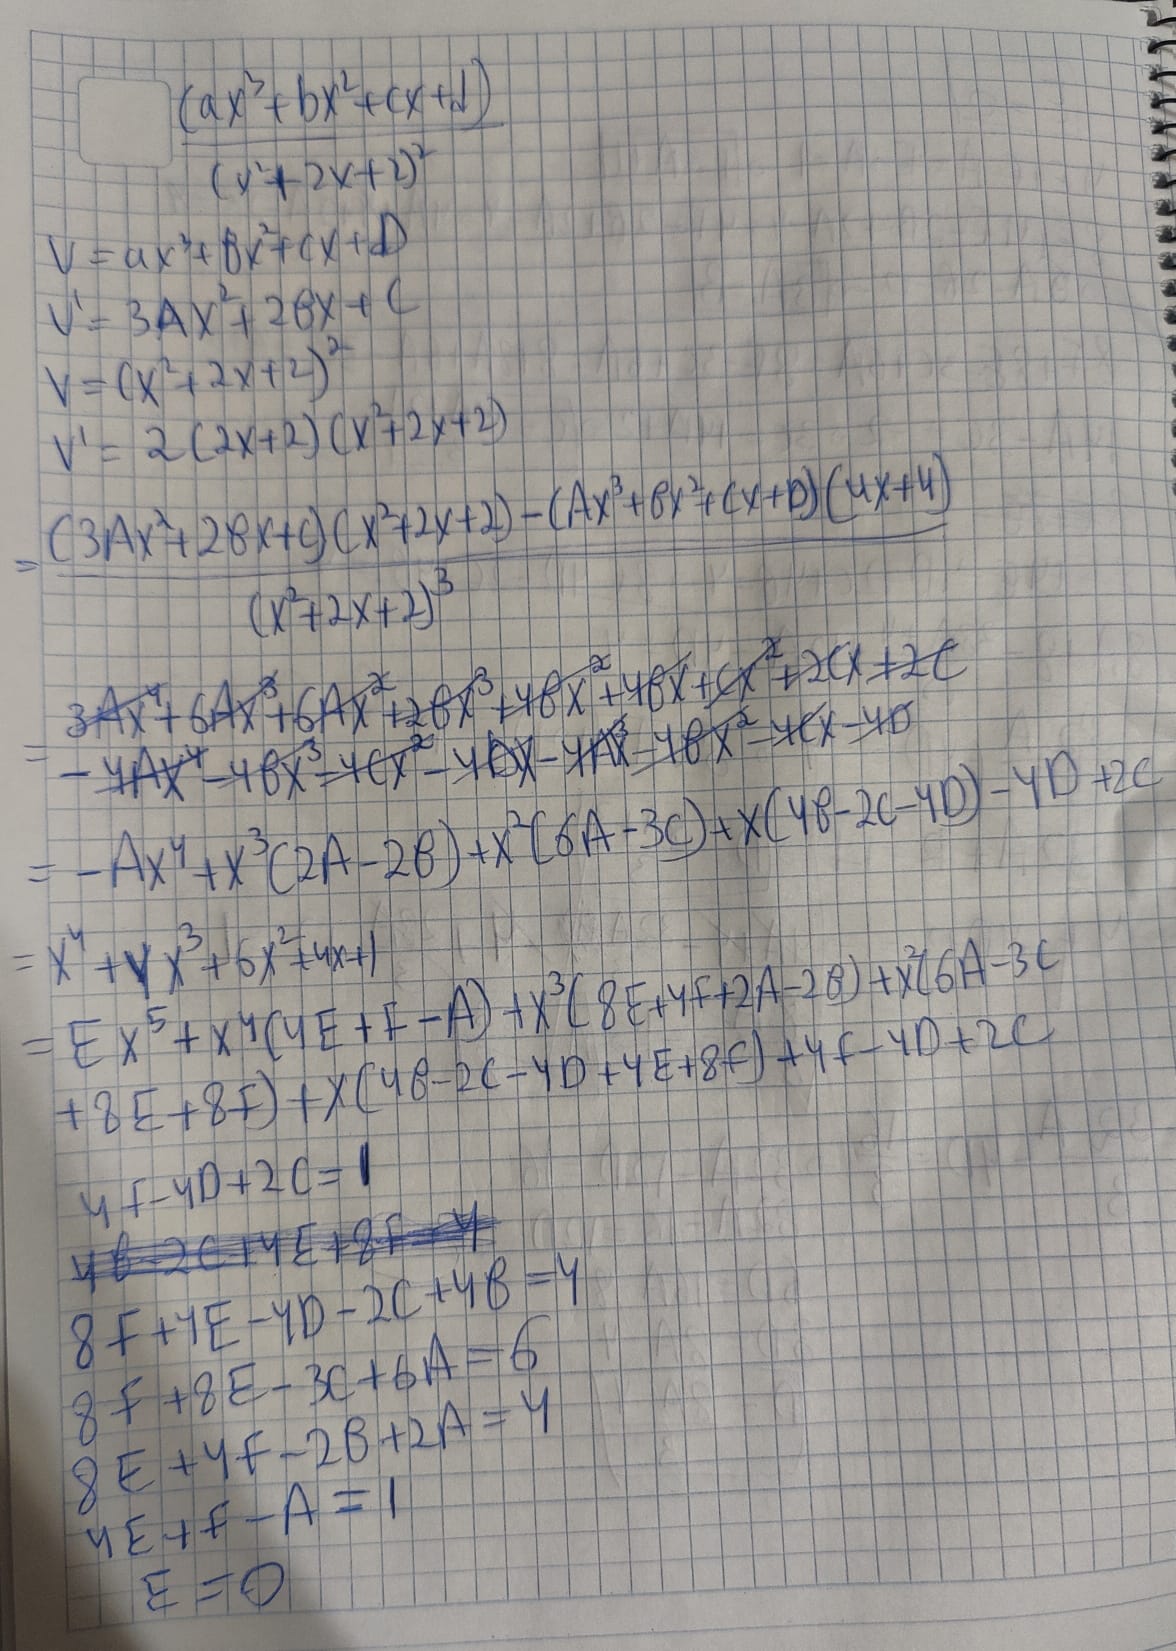 (ax³+bx²+cx+d)
(x²+2x+2)²
V = ax³+Bx²+cx+D
V' = 3Ax²+2Bx+C
V = (x²+2x+2)²
V' = 2(2x+2)(x²+2x+2)
= (3Ax²+2Bx+C)(x²+2x+2)-(Ax³+Bx²+Cx+D)(4x+4)
(x²+2x+2)³
3Ax⁴+6Ax³+6Ax²+2Bx³+4Bx²+4Bx+Cx²+2Cx+2C
= -4Ax⁴-4Bx³-4Cx²-4Dx-4Ax³-4Bx²-4Cx-4D
= -Ax⁴+x³(2A-2B)+x²(6A-3C)+x(4B-2C-4D)-4D+2C
= x⁴+4x³+6x²+4x+1
= Ex⁵+x⁴(4E+F-A)+x³(8E+4F+2A-2B)+x²(6A-3C
+8E+8F)+x(4B-2C-4D+4E+8F)+4F-4D+2C
4F-4D+2C=1
4B-2C+4E+8F=4
8F+4E-4D-2C+4B=4
8F+8E-3C+6A=6
8E+4F-2B+2A=4
4E+F-A=1
E=0